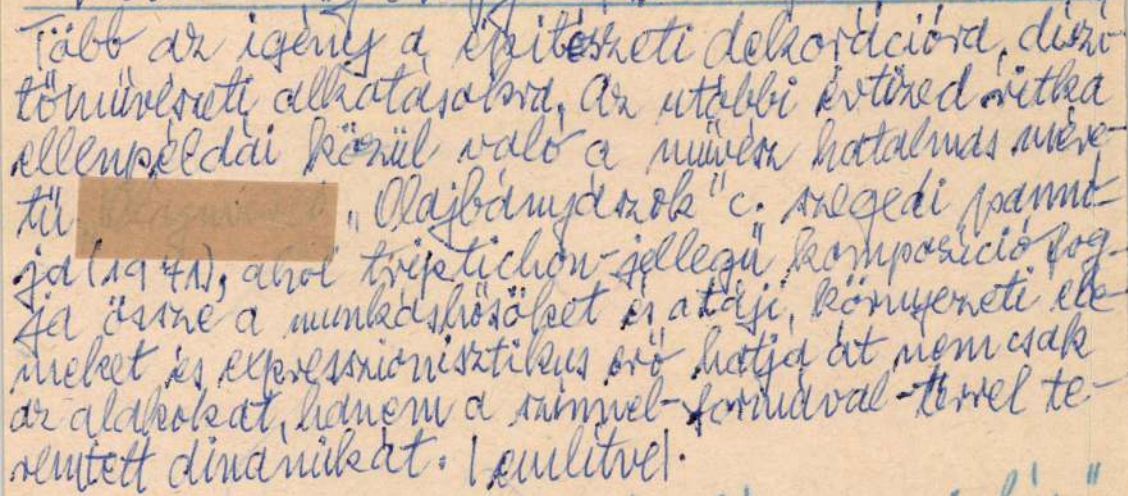 Több az igény a építészeti dekorációra, diszí-
tőművészeti alkotásokra. Az utóbbi évtized ritka
ellenpéldái közül való a művész hatalmas mére-
tű „Olajbányászok" c. szegedi pannó-
ja (1971), ahol triptichon-jellegű kompozíció fog-
ja össze a munkáshősöket és a táji, környezeti ele-
meket és expresszionisztikus erő hatja át nemcsak
az alakokat, hanem a színnel-formával-térrel te-
remtett dinamikát. (említve).